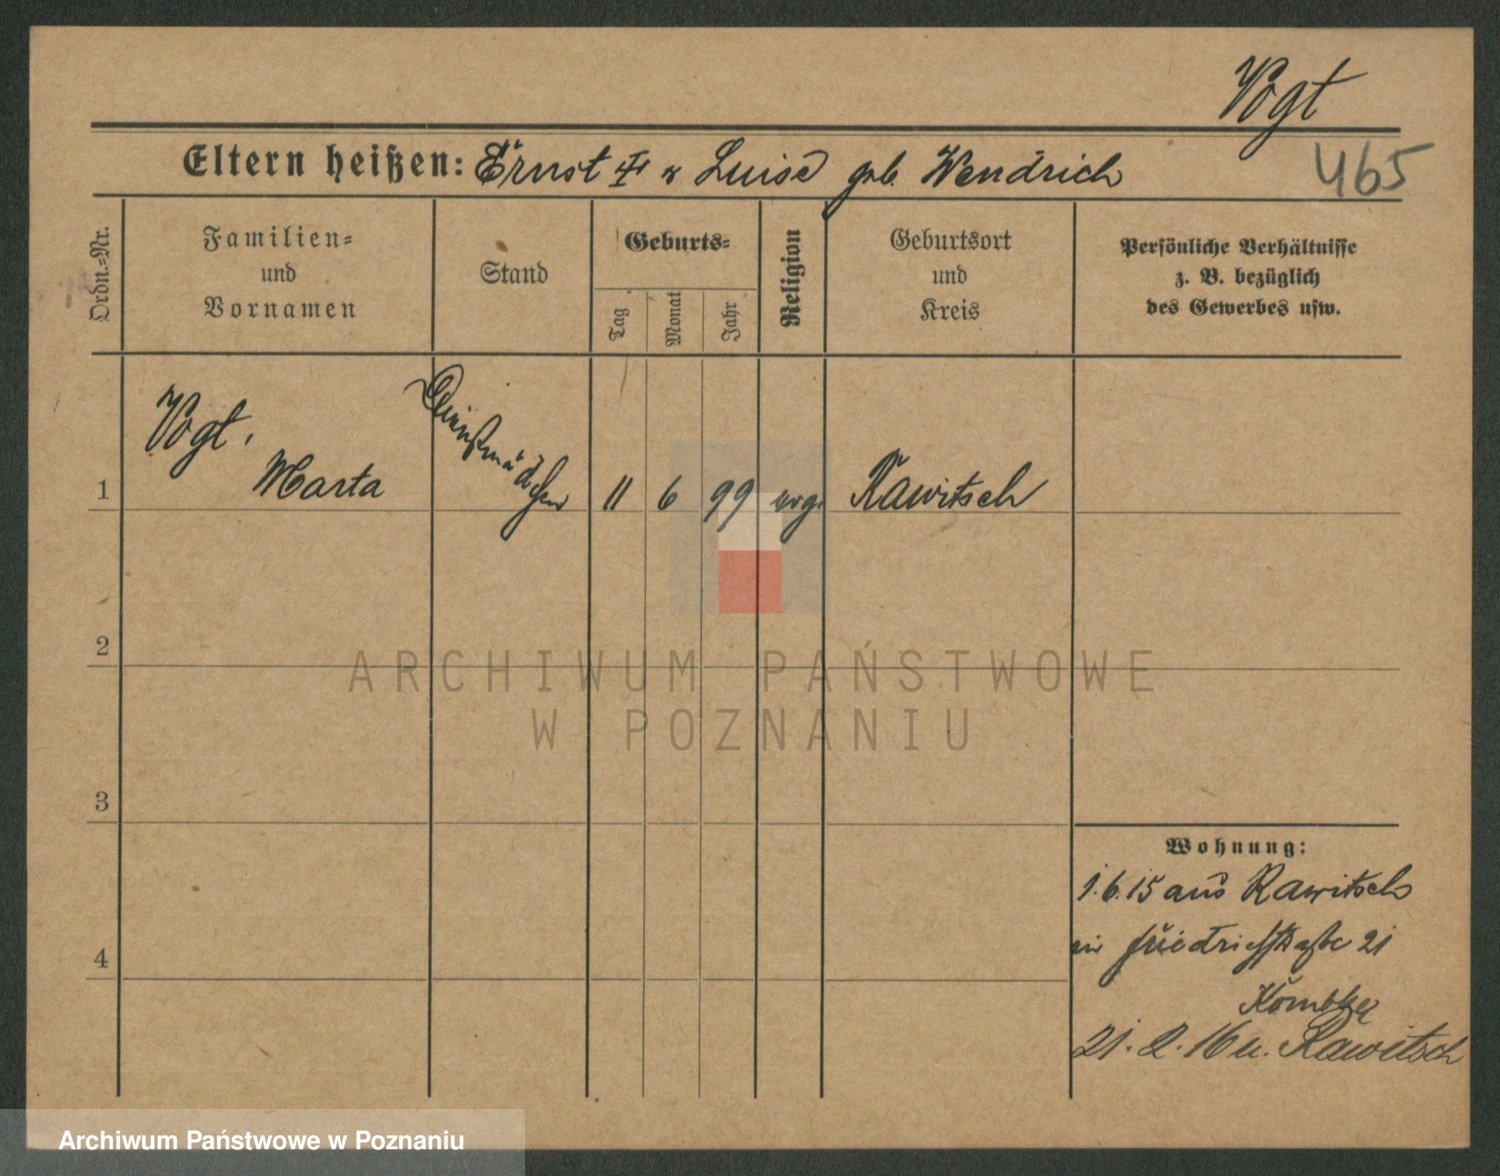 Vogt
465
Eltern heißen: Ernst u Luise geb. Wendrich
Ordn.=Nr.
Familien=
und
Vornamen
Stand
Geburts=
Tag
Monat
Jahr
Religion
Geburtsort
und
Kreis
Persönliche Verhältnisse
z. B. bezüglich
des Gewerbes usw.
1
Vogt,
Marta
Dienstmädchen
11
6
99
evgl.
Rawitsch
2
ARCHIWUM PAŃSTWOWE
W POZNANIU
3
4
Wohnung:
1.6.15 aus Rawitsch
Friedrichstraße 21
21.2.16 n. Rawitsch
Archiwum Państwowe w Poznaniu